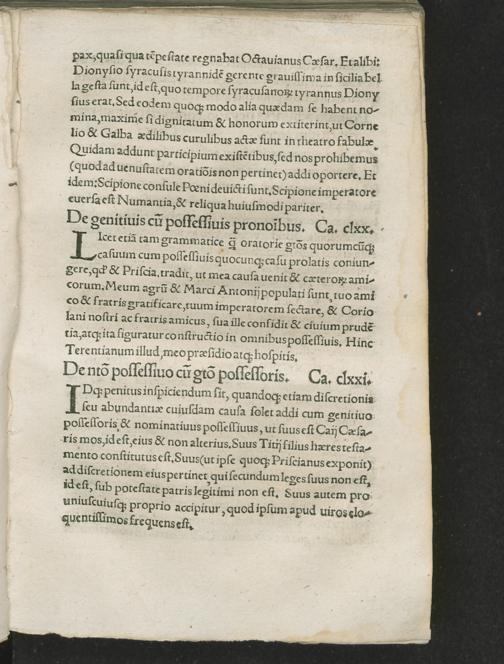 pax, quasi qua tēpestate regnabat Octauianus Cæsar. Et alibi:
Dionysio syracusis tyrannidē gerente grauissima in sicilia bel
la gesta sunt, id est, quo tempore syracusanoꝝ tyrannus Diony
sius erat. Sed eodem quoqꝫ modo alia quædam se habent no-
mina, maxime si dignitatum & honorum extiterint, ut Corne
lio & Galba ædilibus curulibus actæ sunt in theatro fabulæ.
Quidam addunt participium existētibus, sed nos prohibemus
(quod ad uenustatem oratiōis non pertinet) addi oportere. Et
idem: Scipione consule Pœni deuicti sunt. Scipione imperatore
euersa est Numantia, & reliqua huiusmodi pariter.
De genitiuis cū possessiuis pronoībus. Ca. clxx.
LIcet etiā tam grammatice q̄ oratorie gtōs quorumcūqꝫ
casuum cum possessiuis quocunqꝫ casu prolatis coniun-
gere, qđ & Priscia. tradit, ut mea causa uenit & cæteroꝝ ami-
corum. Meum agrū & Marci Antonij populati sunt, tuo ami
co & fratris gratificare, tuum imperatorem sectare, & Corio
lani nostri ac fratris amicus, sua ille confidit & ciuium prudē
tia, atqꝫ ita figuratur constructio in omnibus possessiuis. Hinc
Terentianum illud, meo præsidio atqꝫ hospitis.
De ntō possessiuo cū gtō possessoris. Ca. clxxi.
IDqꝫ penitus inspiciendum sit, quandoqꝫ etiam discretionis
seu abundantiæ cuiusdam causa solet addi cum genitiuo
possessoris & nominatiuus possessiuus, ut suus est Caij Cæsa-
ris mos, id est, eius & non alterius. Suus Titij filius hæres testa-
mento constitutus est. Suus (ut ipse quoqꝫ Priscianus exponit)
ad discretionem eius pertinet, qui secundum leges suus non est,
id est, sub potestate patris legitimi non est. Suus autem pro
uniuscuiusqꝫ proprio accipitur, quod ipsum apud uiros elo-
quentissimos frequens est.